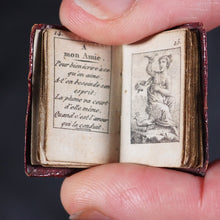 14
A
mon Amie.
Pour bien écrire à ce
qu'on aime
A-t'on besoin de son
esprit.
La plume va court
d'elle même,
Quand c'est l'amour
qui la conduit.
15